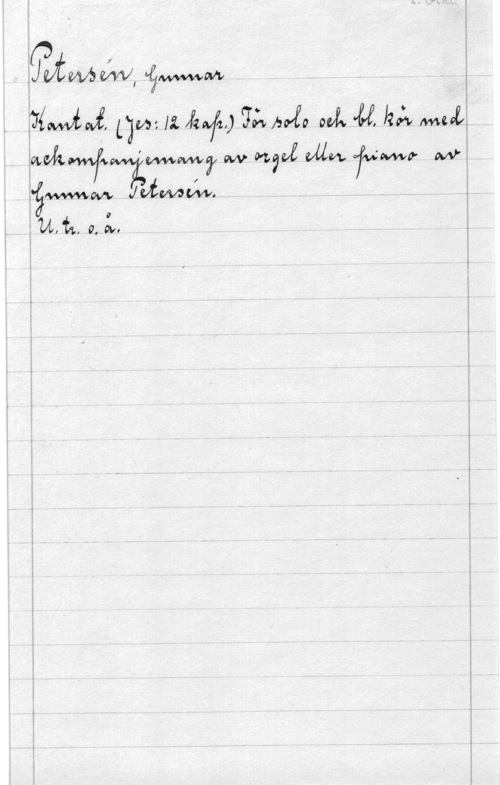 Petersén, Gunnar
Kantat. (Jes: 12 kap.) För solo och bl. kör med
ackompanjemang av orgel eller piano av
Gunnar Petersén.
U. tr. o. å.